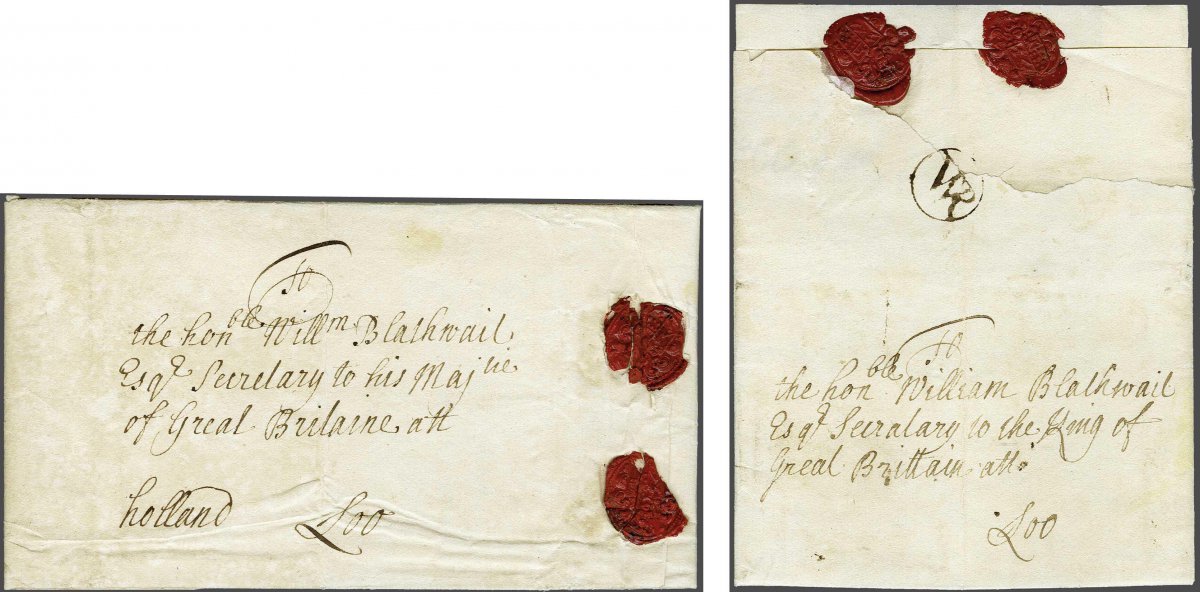 To
the honble Willm Blathwait
Esqr Secretary to his Majtie
of Great Britaine att
holland Loo
To
the honble William Blathwait
Esqr Secratary to the King of
Great Brittain att
Loo